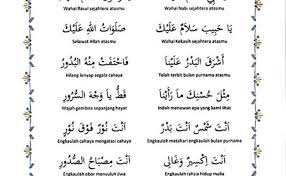 Wahai Rasul sejahtera atasmu
يَا حَبِيبْ سَلَامْ عَلَيْكَ صَلَوَاتُ اللهِ عَلَيْكَ
Selawat Allah atasmu Wahai Kekasih sejahtera atasmu
أَشْرَقَ الْبَدْرُ عَلَيْنَا فَاخْتَفَتْ مِنْهُ الْبُدُورُ
Hilang lenyap segala cahaya Telah terbit bulan purnama atasmu
مِثْلَ حُسْنِكَ مَا رَأَيْنَا قَطُّ يَا وَجْهَ السُّرُورِ
Wajah gembira sepanjang hayat Indah menawan apa yang kami lihat
أَنْتَ شَمْسٌ أَنْتَ بَدْرٌ أَنْتَ نُورٌ فَوْقَ نُورٍ
Engkaulah cahaya mengatasi cahaya Engkaulah matahari engkaulah bulan
أَنْتَ إِكْسِيرٌ وَغَالِي أَنْتَ مِصْبَاحُ الصُّدُورِ
Engkaulah obor menyuluh jiwa Engkaulah rahsia hidup mulia